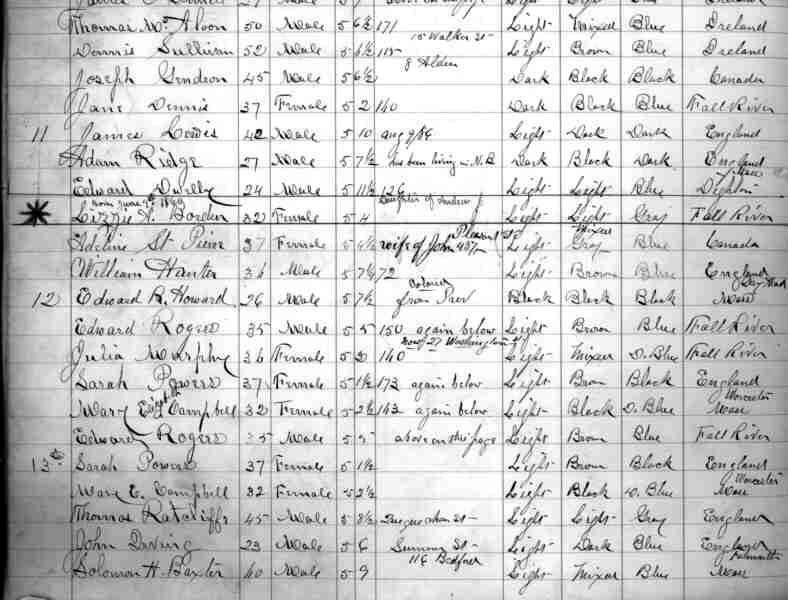 Thomas Mc Aloon 50 Male 5 6½ 171 Light Mixed Blue Ireland
15 Walker St
Dennis Sullivan 52 Male 5 6½ 115 Light Brown Blue Ireland
8 Alden
Joseph Gendron 45 Male 5 6½ Dark Black Black Canada
Jane Dennis 37 Female 5 2 140 Dark Black Blue Fall River
11 James Lewis 42 Male 5 10 Light Dark Dark England
Adam Ridge 27 Male 5 7½ has been living in N.B. Dark Black Dark England
Mass
Edward 24 Male 5 11½ 126 Light Light Blue Dighton
born June 9th 1860 Daughter of Andrew J
Lizzie A. Borden 32 Female 5 4 Light Light Gray Fall River
Pleasant St Mixed
Adeline St Pierre 37 Female 5 4½ wife of John Light Gray Blue Canada
William Hunter 36 Male 5 7¼ 172 Light Brown Blue England
Colored
12 Edward B. Howard 26 Male 5 7½ from Black Black Black Mass
Edward Rogers 35 Male 5 5 150 again below Light Brown Blue Fall River
now 27 Washington St
Julia Murphy 36 Female 5 2 140 Light Mixed D. Blue Fall River
Sarah Powers 37 Female 5 1½ 173 again below Light Brown Black England
Elizabeth Worcester
Mary E Campbell 32 Female 5 2½ 143 again below Light Black D. Blue Mass
Edward Rogers 35 Male 5 5 above on this page Light Brown Blue Fall River
13 Sarah Powers 37 Female 5 1½ Light Brown Black England
Worcester
Mary E. Campbell 32 Female 5 2½ Light Black D. Blue Mass
Thomas Ratcliffe 45 Male 5 8½ Light Light Gray England
John 23 Male 5 6 Summer St Light Dark Blue England
116 Bedford Falmouth
Solomon H. Baxter 60 Male 5 9 Light Mixed Blue Mass